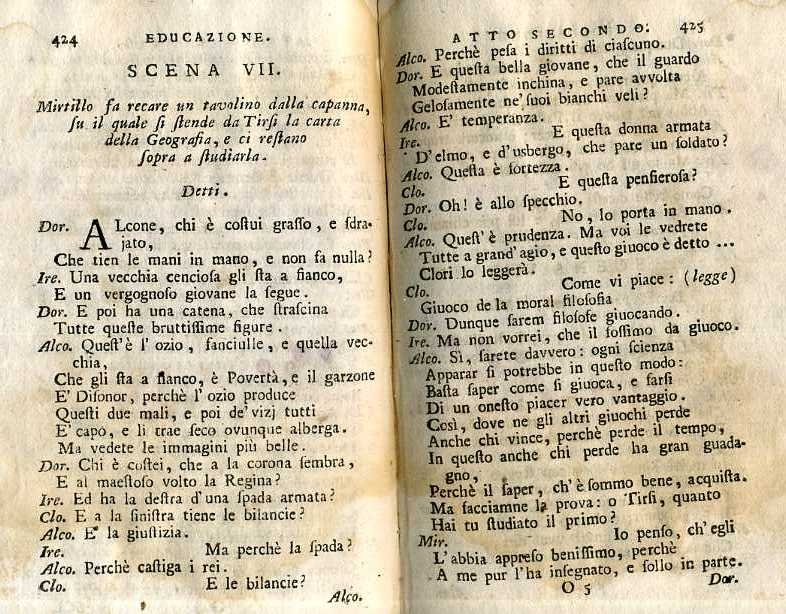 424 EDUCAZIONE.
SCENA VII.
Mirtillo fa recare un tavolino dalla capanna,
ſu il quale ſi ſtende da Tirſi la carta
della Geografia, e ci reſtano
ſopra a ſtudiarla.
Detti.
Dor. ALcone, chi è coſtui graſſo, e ſdra-
jato,
Che tien le mani in mano, e non fa nulla?
Ire. Una vecchia cencioſa gli ſta a fianco,
E un vergognoſo giovane la ſegue.
Dor. E poi ha una catena, che ſtraſcina
Tutte queſte bruttiſſime figure.
Alco. Queſt'è l' ozio, fanciulle, e quella vec-
chia,
Che gli ſta a fianco, è Povertà, e il garzone
E' Diſonor, perchè l' ozio produce
Queſti due mali, e poi de' vizj tutti
E' capo, e li trae ſeco ovunque alberga.
Ma vedete le immagini più belle.
Dor. Chi è coſtei, che a la corona ſembra,
E al maeſtoſo volto la Regina?
Ire. Ed ha la deſtra d'una ſpada armata?
Clo. E a la ſiniſtra tiene le bilancie?
Alco. E' la giuſtizia.
Ire. Ma perchè la ſpada?
Alco. Perchè caſtiga i rei.
Clo. E le bilancie?
Alco.
ATTO SECONDO. 425
Alco. Perchè peſa i diritti di ciaſcuno.
Dor. E queſta bella giovane, che il guardo
Modeſtamente inchina, e pare avvolta
Geloſamente ne' ſuoi bianchi veli?
Alco. E' temperanza.
Ire. E queſta donna armata
D'elmo, e d'usbergo, che pare un ſoldato?
Alco. Queſta è fortezza.
Clo. E queſta penſieroſa?
Dor. Oh! è allo ſpecchio.
Clo. No, lo porta in mano.
Alco. Queſt' è prudenza. Ma voi le vedrete
Tutte a grand' agio, e queſto giuoco è detto ...
Clori lo leggerà.
Clo. Come vi piace: (legge)
Giuoco de la moral filoſofia
Dor. Dunque ſarem filoſofe giuocando.
Ire. Ma non vorrei, che il foſſimo da giuoco.
Alco. Sì, ſarete davvero: ogni ſcienza
Apparar ſi potrebbe in queſto modo:
Baſta ſaper come ſi giuoca, e farſi
Di un oneſto piacer vero vantaggio.
Così, dove ne gli altri giuochi perde
Anche chi vince, perchè perde il tempo,
In queſto anche chi perde ha gran guada-
gno,
Perchè il ſaper, ch'è ſommo bene, acquiſta.
Ma facciamne la prova: o Tirſi, quanto
Hai tu ſtudiato il primo?
Mir. Io penſo, ch'egli
L'abbia appreſo beniſſimo, perchè
A me pur l'ha inſegnato, e ſollo in parte.
O 5 Dor.